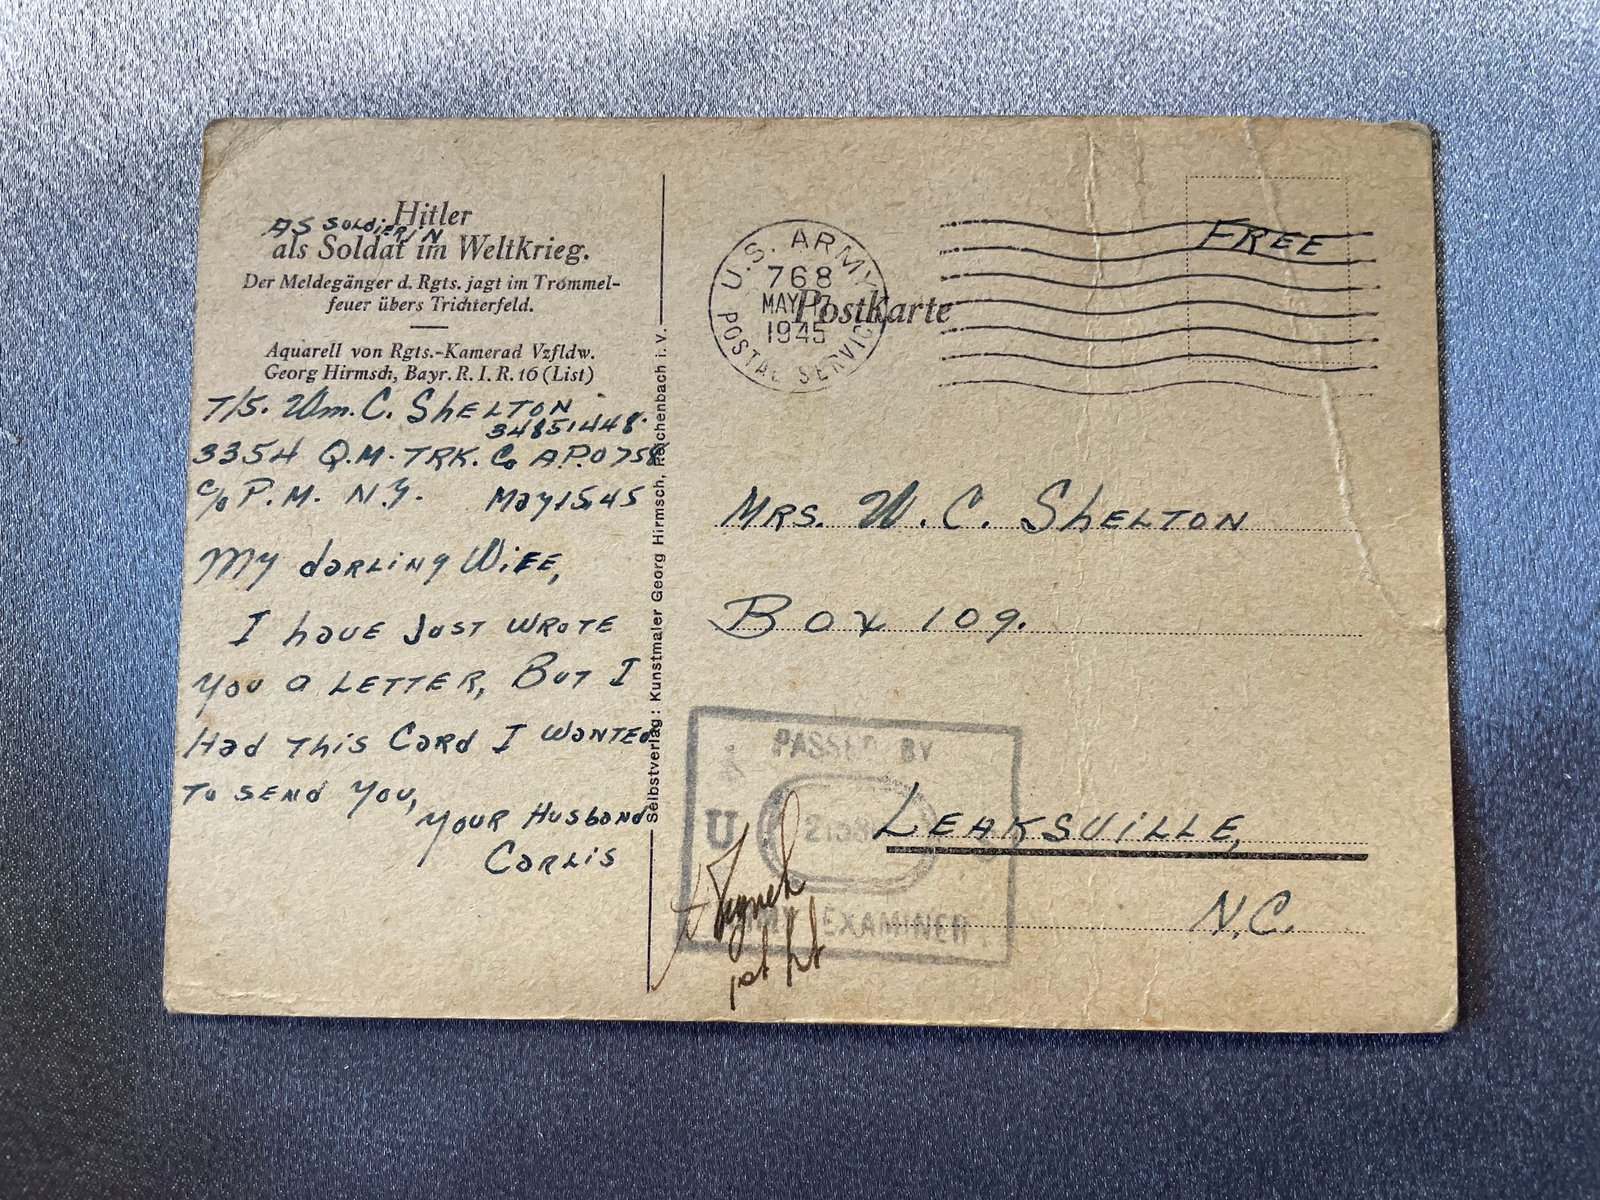 Hitler
AS SOLDIER IN
als Soldat im Weltkrieg.
Der Meldegänger d. Rgts. jagt im Trommel-
feuer übers Trichterfeld.
Aquarell von Rgts.-Kamerad Vzfldw.
Georg Hirmsch, Bayr. R. I. R. 16 (List)
T/5. Wm. C. SHELTON
34851448.
3354 Q.M. TRK. Co A.P.O 758
c/o P.M. N.Y. May 15, 45
My darling Wife,
I have just wrote
you a letter, But I
Had this Card I wanted
to send you,
Your Husband
Carlis
Selbstverlag: Kunstmaler Georg Hirmsch, Reichenbach i. V.
U.S. ARMY
768
MAY 17
1945
POSTAL SERVICE
Postkarte
FREE
MRS. W. C. SHELTON
Box 109.
LEAKSVILLE,
N.C.
PASSED BY
U
ARMY EXAMINER
Lynch
1st Lt